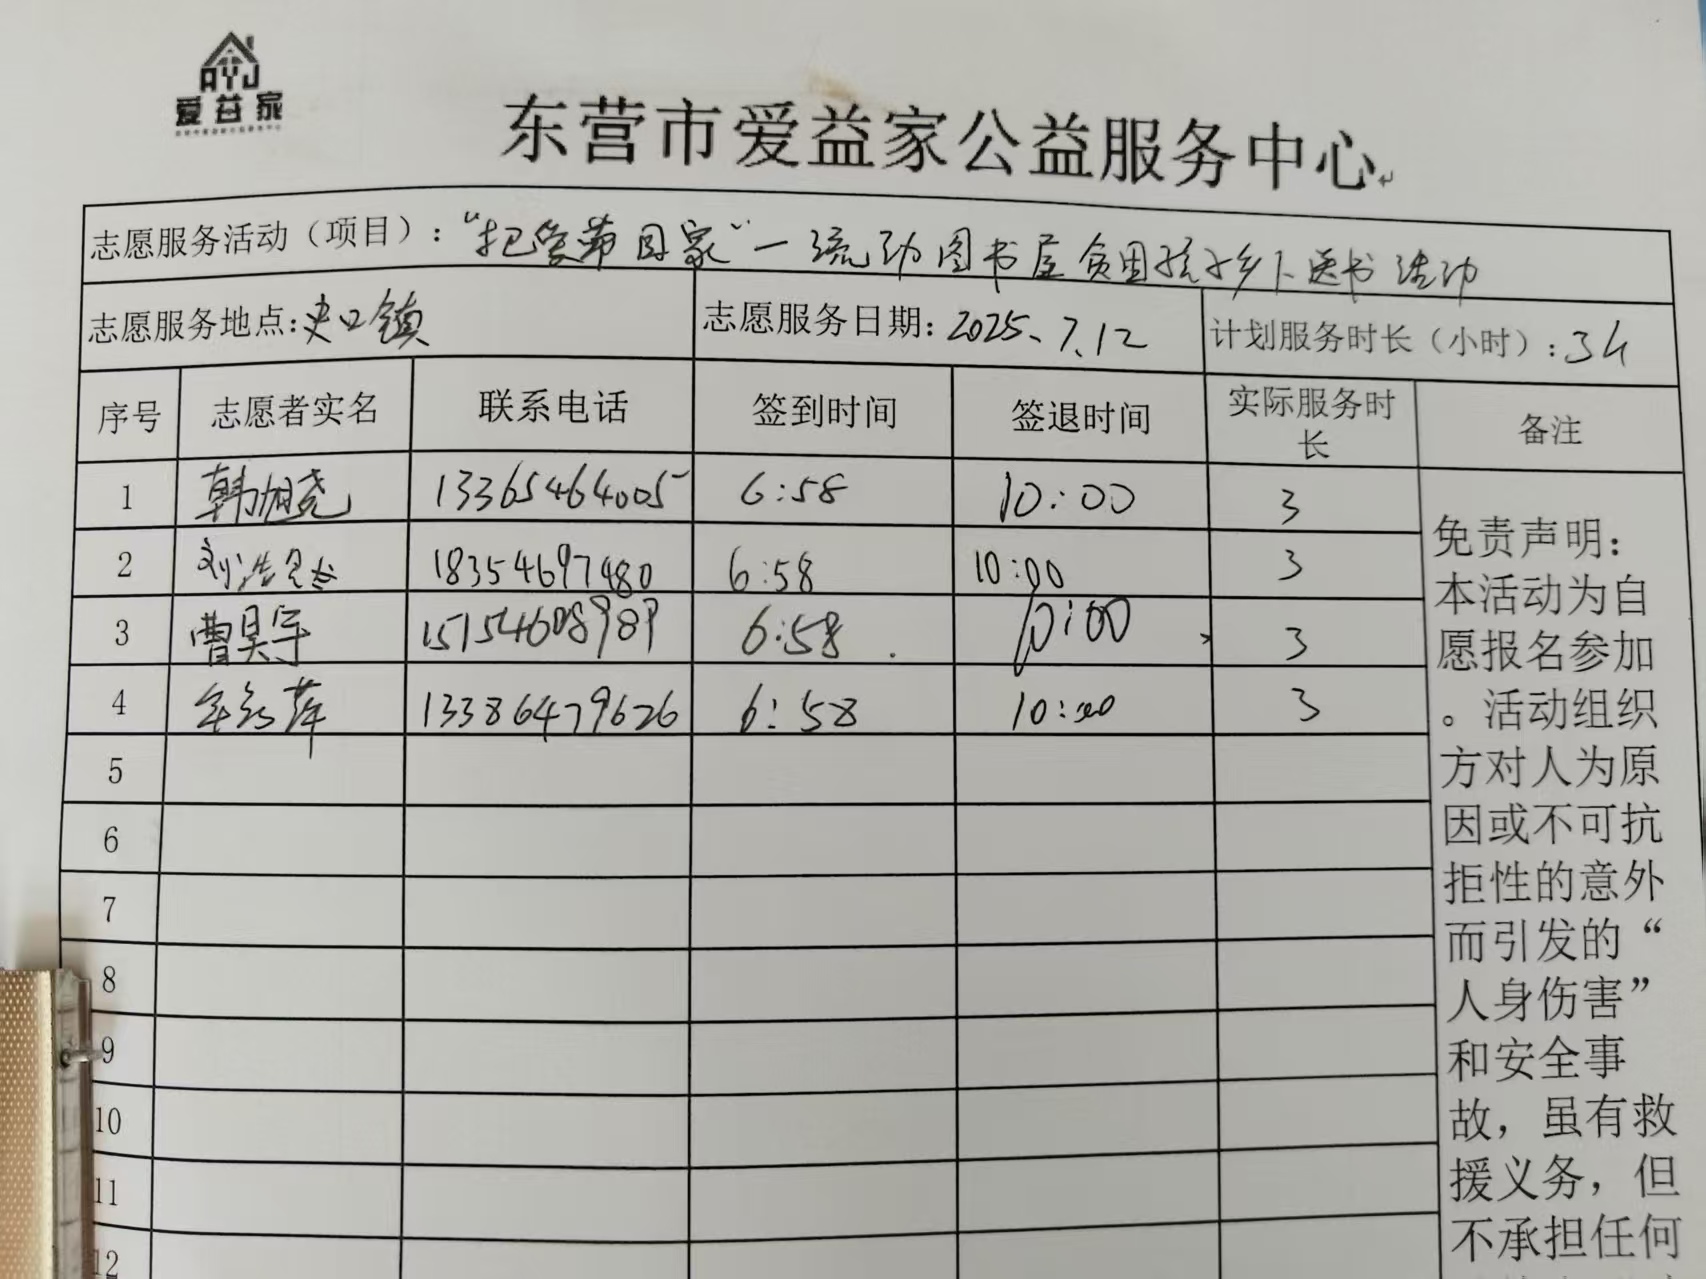 AYJ
爱益家
东营市爱益家公益服务中心
志愿服务活动（项目）：“把爱带回家”一流动图书屋贫困孩子乡下送书活动
志愿服务地点:史口镇 志愿服务日期: 2025.7.12 计划服务时长（小时）: 3h
序号 志愿者实名 联系电话 签到时间 签退时间 实际服务时长 备注
1 韩旭尧 13365464005 6:58 10:00 3
2 刘浩 18354697480 6:58 10:00 3
3 曹昊宇 15154608989 6:58 10:00 3
4 萍 13386479626 6:58 10:00 3
5
6
7
8
9
10
11
12
免责声明：
本活动为自
愿报名参加
。活动组织
方对人为原
因或不可抗
拒性的意外
而引发的“
人身伤害”
和安全事
故，虽有救
援义务，但
不承担任何